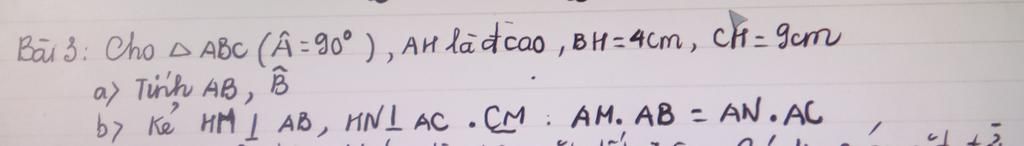 Bài 3: Cho △ ABC (Â = 90°), AH là đ cao, BH = 4cm, CH = 9cm
a) Tính AB, B̂
b) Kẻ HM ⊥ AB, HN ⊥ AC . CM : AM. AB = AN . AC